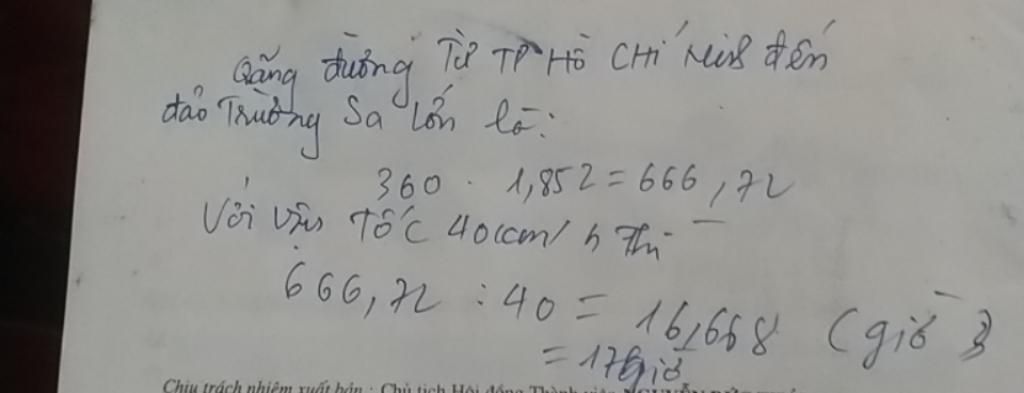 Quãng đường Từ TP Hồ CHÍ Minh đến
đảo Trường Sa Lớn là:
360 . 1,852 = 666,72
Với vận TỐC 40km/h Thì
666,72 : 40 = 16,668 (giờ)
= 17 giờ
Chịu trách nhiệm xuất bản : Chủ tịch Hội đồng Thành viên